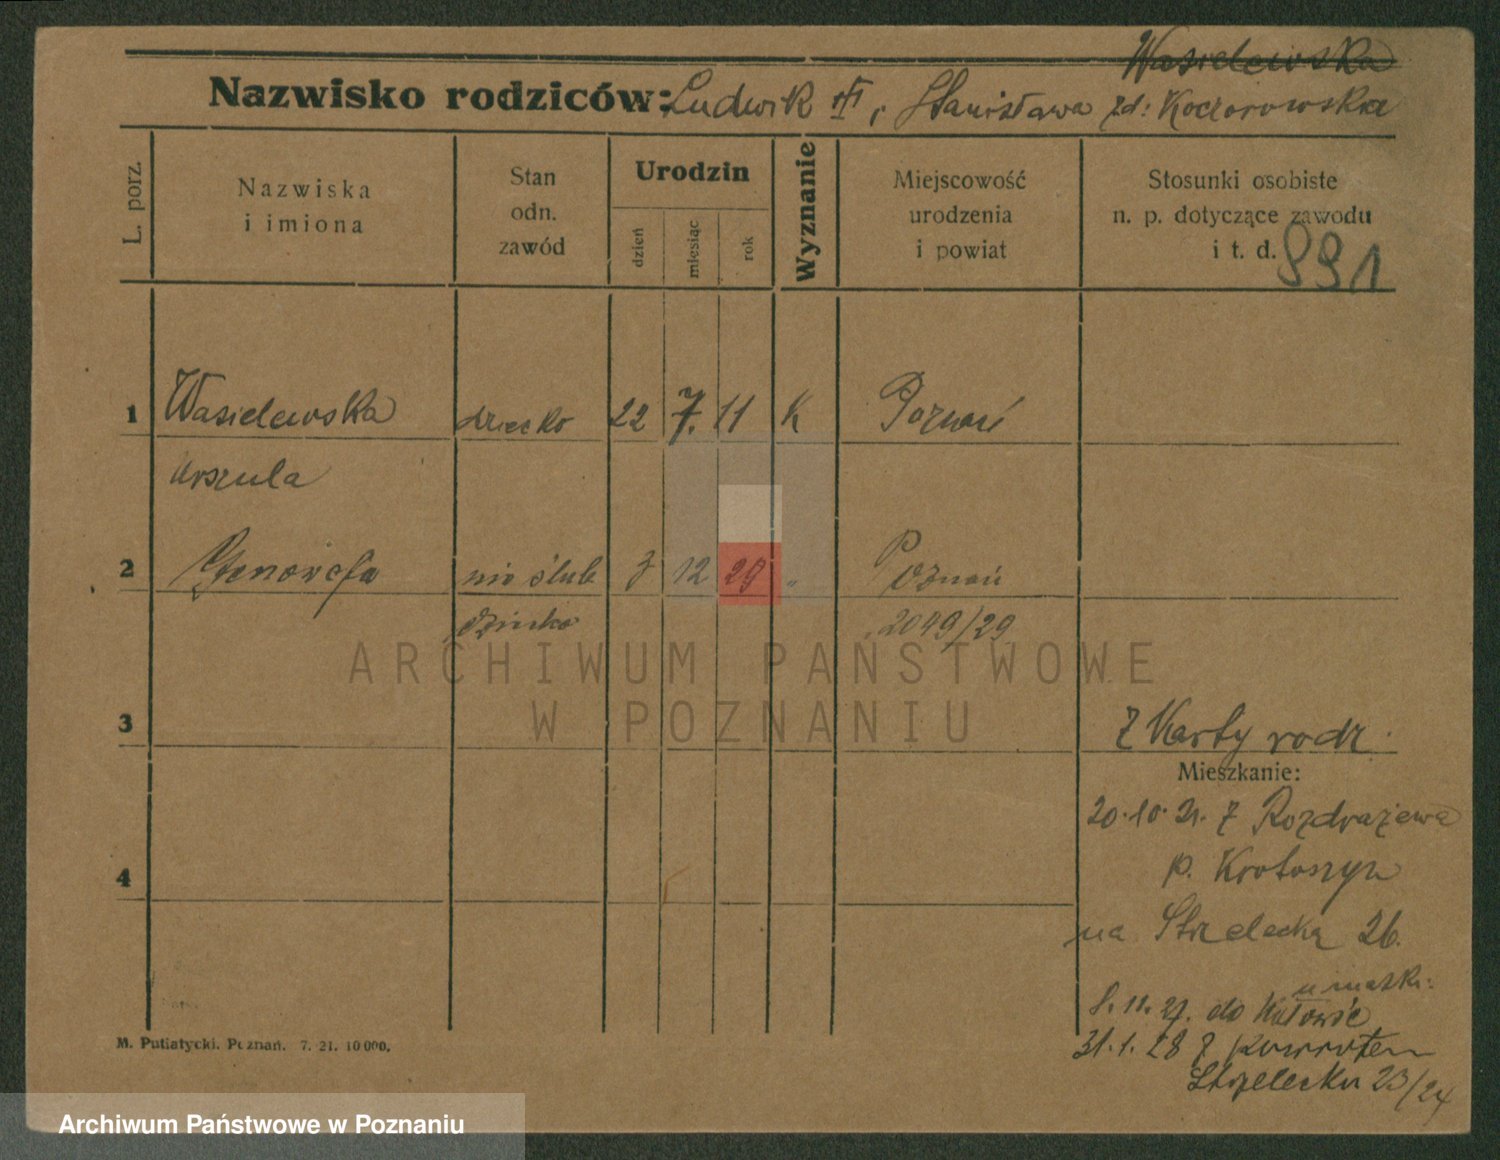 Wasielewska
Nazwisko rodziców: Ludwik i Stanisława zd: Koczorowska
L. porz.
Nazwiska
i imiona
Stan
odn.
zawód
Urodzin
dzień
miesiąc
rok
Wyznanie
Miejscowość
urodzenia
i powiat
Stosunki osobiste
n. p. dotyczące zawodu
i t. d.
991
1 Wasielewska dziecko 22 7. 11 K Poznań
Urszula
2 Genowefa nieślub 3 12 29 " Poznań
dziecko 2049/29
ARCHIWUM PAŃSTWOWE
W POZNANIU
3
z Karty rodz.
Mieszkanie:
20.10.21. z Rozdrażewa
p. Krotoszyn
4
na Strzelecka 26.
u matki:
8.11.27. do Katowic
31.1.28 z powrotem
Strzelecka 23/24
M. Putiatycki. Poznań. 7. 21. 10 000.
Archiwum Państwowe w Poznaniu